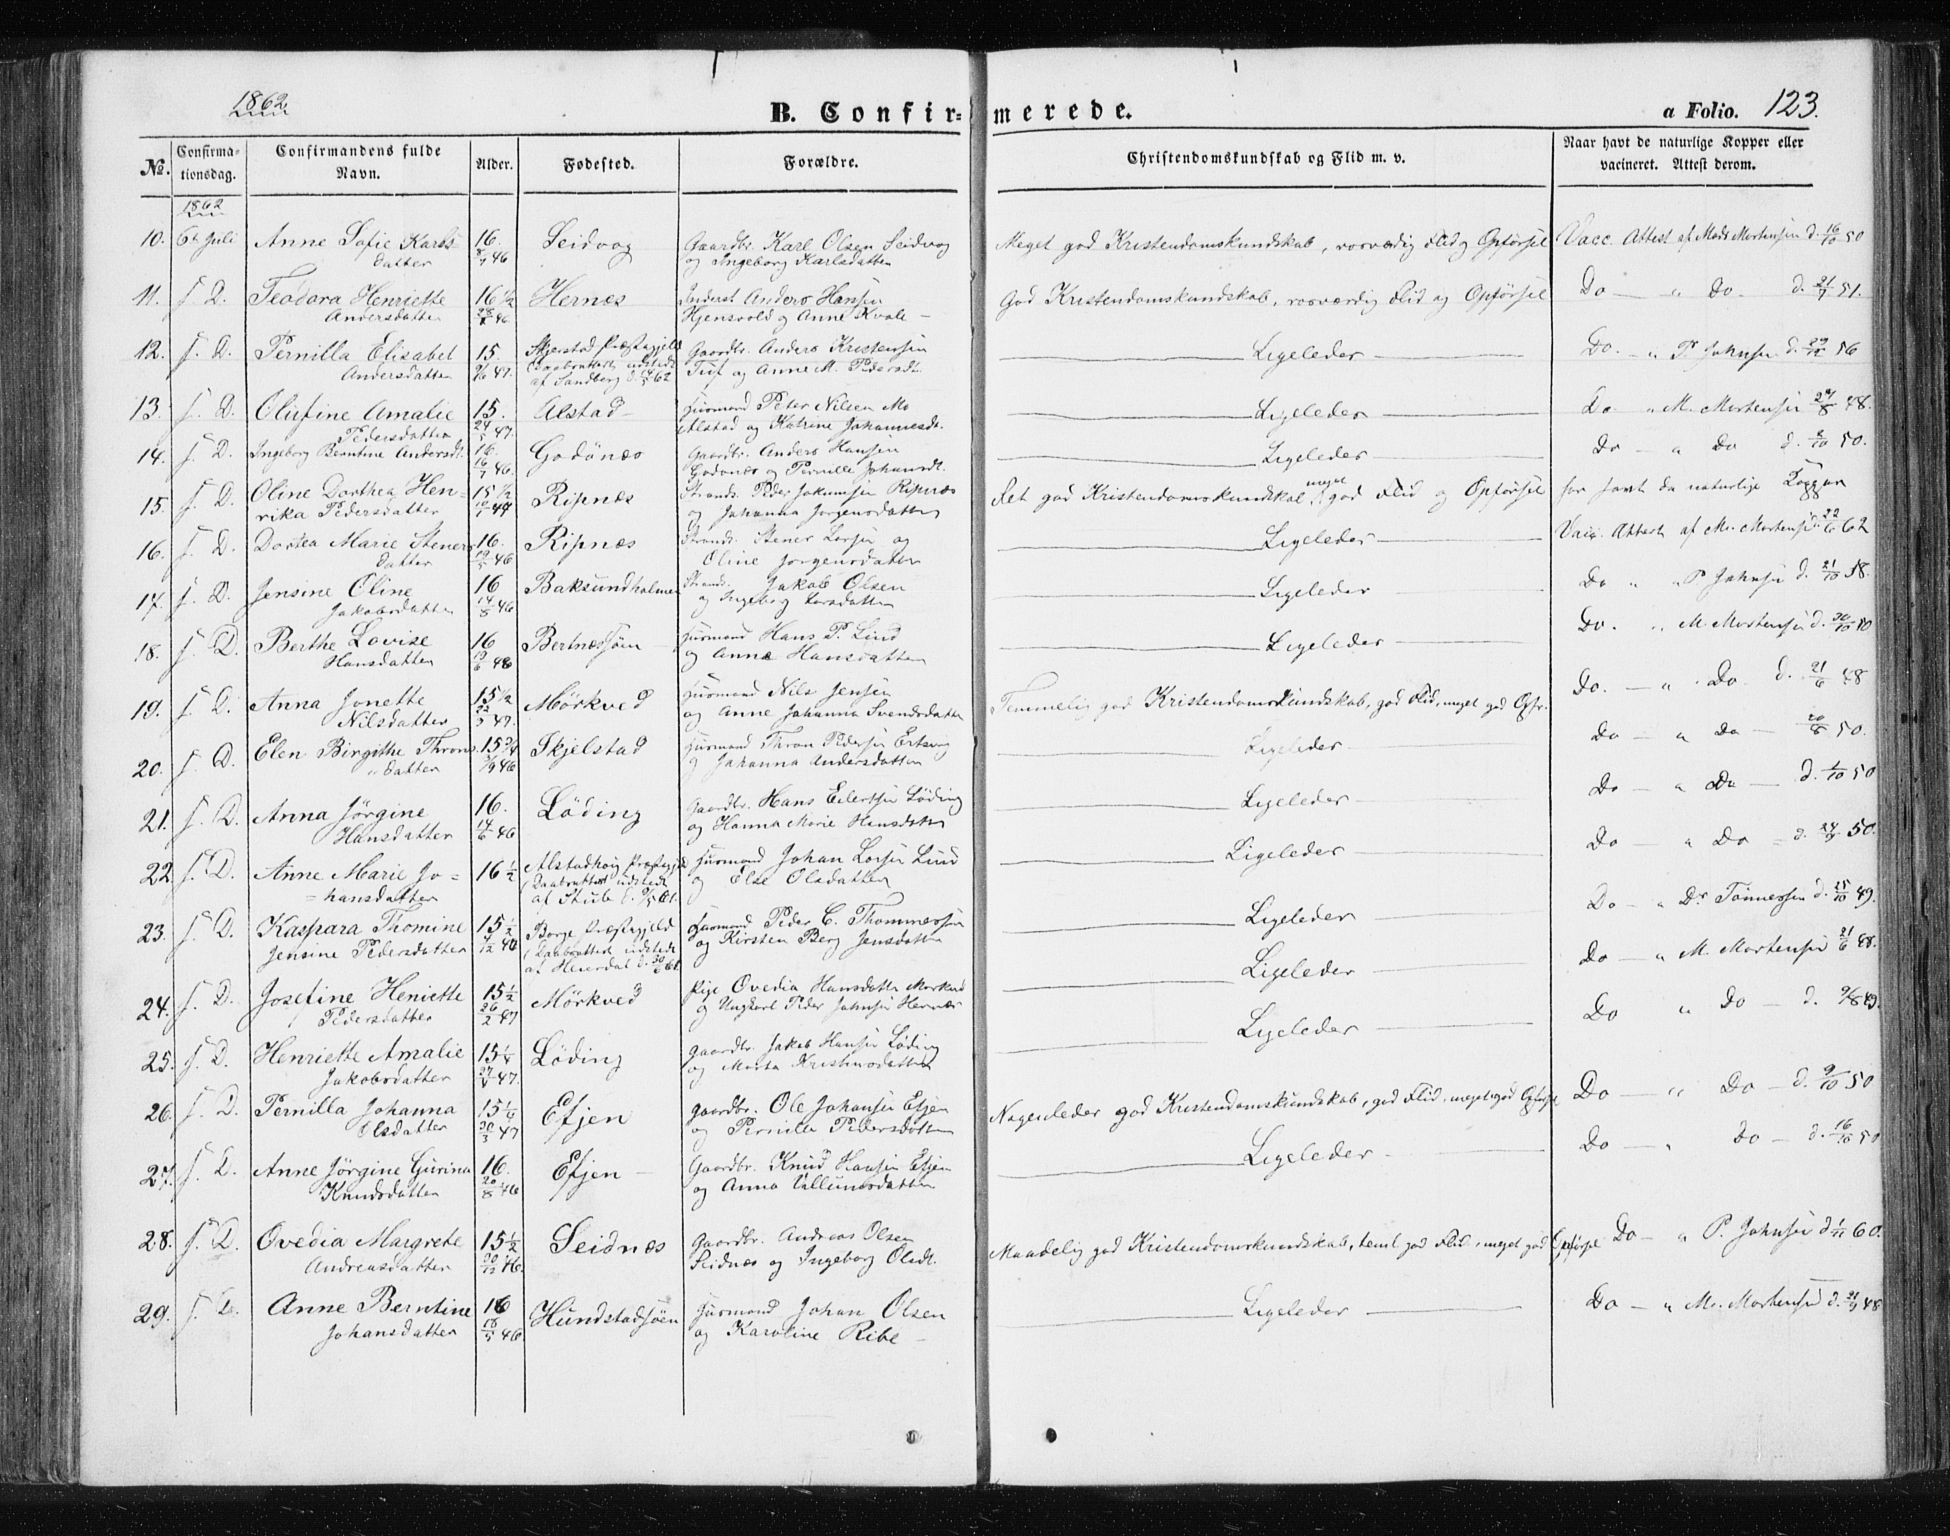 1862
B. Confirmerede.
a Folio. 123.
No.
Confirmationsdag.
Confirmandens fulde Navn.
Alder.
Fødested.
Forældre.
Christendomskundskab og Flid m. v.
Naar havt de naturlige Kopper eller vacineret. Attest derom.
1862
10. 6te Juli Anne Sofie Karls- 16. Seidvog Gaardbr. Karl Olsen Seidvog Meget god Kristendomskundskab, rosværdig Flid og Opførsel Vacc. Attest af Mads Mortensen d. 16/10 50
datter 8/7 46 og Ingeborg Karlsdatter
11. s. D. Teodora Henriette 16 1/2 Hernes Inderst Anders Hansen God Kristendomskundskab, rosværdig Flid og Opførsel Do — " Do. d. 21/7 51.
Andersdatter Hjensvold og Anne Kvale
12. s. D. Pernilla Elisabet 15. Skjerstad Præstegjeld Gaardbr. Anders Kristensen Ligeleder Do. — " P. Johnsen d. 29/12 56
Andersdatter 9/6 47. Daabsattest udstedt Tuf og Anne M. Pedersdt.
af Sandberg d. 14/5 62
13. s. D. Olufine Amalie 15. Alstad Husmand Peter Nilsen Mo Ligeleder Do. " M. Mortensen 29/8 48.
Pedersdatter 24/5 47. Alstad og Katrine Johannesdt.
14. s. D. Ingeborg Berntine Andersdt. 16. Godønes Gaardbr. Anders Hansen Ligeleder Do — " Do d. 8/10 50.
16/7 46. Godønes og Pernille Johansdt.
15. s. D. Oline Dorthea Hen- 15 1/2 Ripnes Strands. Peder Johansen Ripnes Ret god Kristendomskundskab, meget god Flid og Opførsel har havt de naturlige Kopper
rika Pedersdatter og Johanna Jørgensdatter
16. s. D. Dortea Marie Steners- 16. Ripnes Strands. Stener Larsen og Ligeleder Vacc. Attest af M. Mortensen 22/6 62
datter 19/5 46 Oline Jørgensdatter
17. s. D. Jensine Oline 16 Baksundholmen Strand. Jakob Olsen Ligeleder Do " " P. Johnsen d. 21/10 58.
Jakobsdatter 14/5 46 og Ingeborg Larsdatter
18. s. D. Berthe Lovise 16 Bertnessjøen Husmand Hans P. Lund Ligeleder Do. " M. Mortensen d. 30/10 50
Hansdatter 19/6 46 og Anne Hansdatter
19. s. D. Anna Jonette 15 1/2 Mørkved Husmand Nils Jensen Temmelig god Kristendomskundskab, god Flid, meget god Opfør. Do. — " Do d. 21/6 48
Nilsdatter 22/3 47. og Anne Johanna Svendsdatter
20. s. D. Elen Birgithe Throns- 15 3/4 Skjelstad Husmand Thron Pedersen Ligeleder Do — " Do — 20/8 50.
datter 3/9 46 og Johanna Andersdatter
21. s. D. Anna Jørgine 16. Løding Gaardbr. Hans Eilertsen Løding Ligeleder Do — " Do — d. 1/10 50
Hansdatter 14/6 46 og Hanna Marie Hansdatter
22. s. D. Anne Marie Jo- 16 1/2 Alstadhoug Præstegjeld Husmand Johan Larsen Lund Ligeleder Do " Do — d. 24/9 50.
hansdatter Daabsattest udstedt og Else Olsdatter
af Stub d. 9/5 61.
23. s. D. Kaspara Thomine 15 1/2 Borge Præstegjeld Husmand Peder C. Thommessen Ligeleder Do — " Dr Tønnessen d. 25/10 49.
Jensine Pedersdatter 4/12 46 Daabsattest udstedt og Kirsten Berg Jensdatter
af Heierdal d. 30/6 61.
24. s. D. Josefine Heniette 15 1/2 Mørkved Pige Ovedia Hansdatter Mørkved Ligeleder Do — " M. Mortensen 21/6 48.
Pedersdatter 26/2 47 og Ungkarl Peder Johnsen Hernes
25. s. D. Henriette Amalie 15 1/4 Løding Gaardbr. Jakob Hansen Løding Ligeleder Do " Do — d. 9/8 49.
Jakobsdatter 27/4 47. og Marta Kristensdatter
26. s. D. Pernilla Johanna Efjen Gaardbr. Ole Johansen Efjen Nogenleder god Kristendomskundskab, god Flid, meget god Opførsel Do — " Do — d. 9/10 50
Olsdatter 30/3 47 og Pernille Pedersdatter
27. s. D. Anne Jørgine Gurina 16. Efjen Gaardbr. Knud Hansen Efjen Ligeleder Do — " Do — d. 16/10 50
Knudsdatter 20/8 46 og Anna Villumsdatter
28. s. D. Ovedia Margrete 15 1/2 Seidnes Gaardbr. Andreas Olsen Maadelig god Kristendomskundskab, teml. god Flid, meget god Opførsel Do — " P. Johnsen d. 1/11 60.
Andreasdatter 30/12 46. Seidnes og Ingeborg Olsdt.
29. s. D. Anne Berntine 16 Hundstadsjøen Husmand Johan Olsen Ligeleder Do — " M. Mortensen d. 21/9 48
Johansdatter 18/5 46 og Karoline Ribe